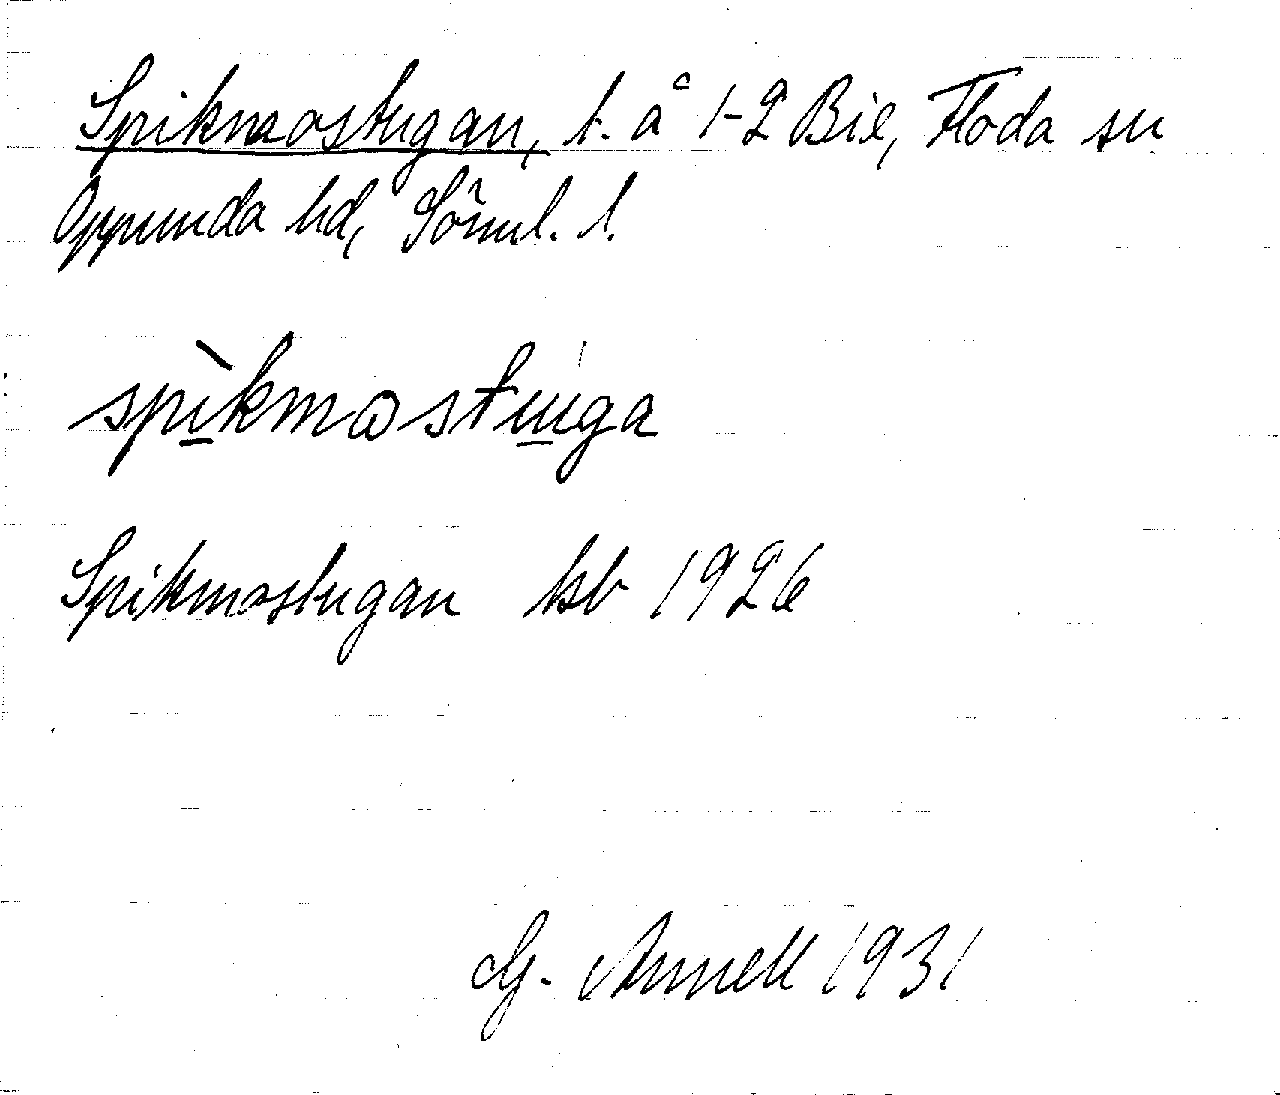 Spikmostugan, t. å 1-2 Bie, Floda sn
Oppunda hd, Söml. l.
spìkmostuga
Spikmostugan kb 1926
G. Annell 1931